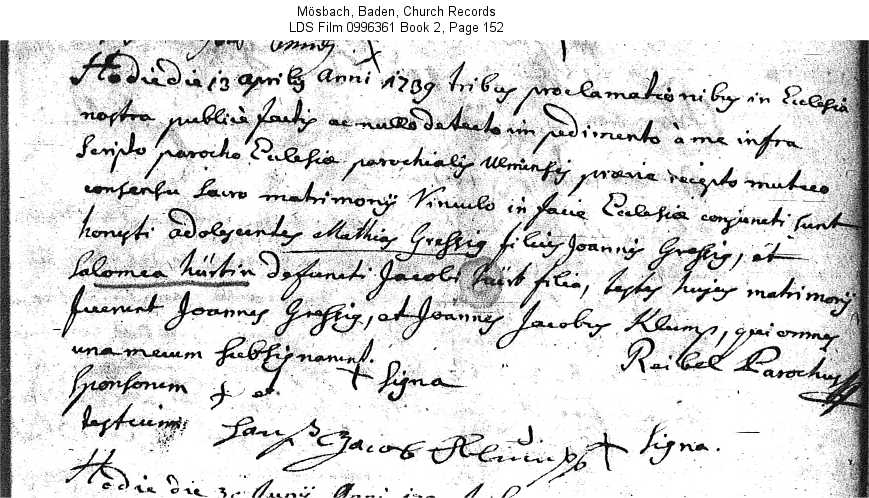 Mösbach, Baden, Church Records
LDS Film 0996361 Book 2, Page 152
annis
Hodie die 13 aprilis Anni 1739 tribus proclamationibus in Ecclesia
nostra publice factis ac nullo detecto impedimento à me infra
scripto parocho Eclesiæ parochialis Ulmensis prævie recepto mutuo
consensu sacro matrimonij Vinculo in facie Ecclesiæ conjuncti sunt
honesti adolescentes Mathias Gressig filius Joannis Gressig, et
Salomea Hürstin defuncti Jacobi Hürst filia, testes hujus matrimonij
fuerunt Joannes Gressig, et Joannes Jacobus Klump, qui omnes
una mecum subsignarunt. Reibel Parochus
Sponsorum + et + Signa
testium
Jacob Klump + Signa.
Hodie die Junij Anni